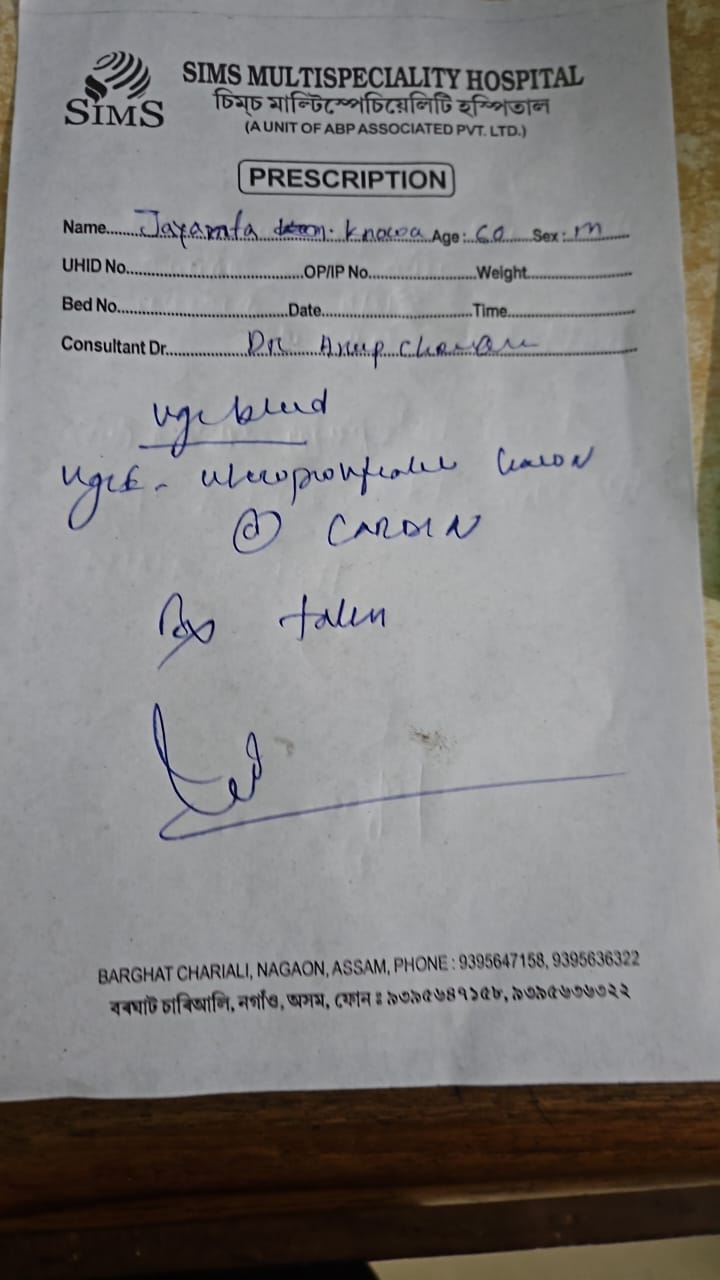 SIMS
SIMS MULTISPECIALITY HOSPITAL
চিম্‌চ মাল্টিস্পেচিয়েলিটি হস্পিতাল
(A UNIT OF ABP ASSOCIATED PVT. LTD.)
PRESCRIPTION
Name Jayanta Age: 60 Sex: M
UHID No. OP/IP No. Weight
Bed No. Date Time
Consultant Dr. DR Anup
UGI bleed
UGIE - ulceroproliferative
@ CARDIA
Bx taken
BARGHAT CHARIALI, NAGAON, ASSAM, PHONE : 9395647158, 9395636322
বৰঘাট চাৰিআলি, নগাঁও, অসম, ফোন : ৯৩৯৫৬৪৭১৫৮, ৯৩৯৫৬৩৬৩২২